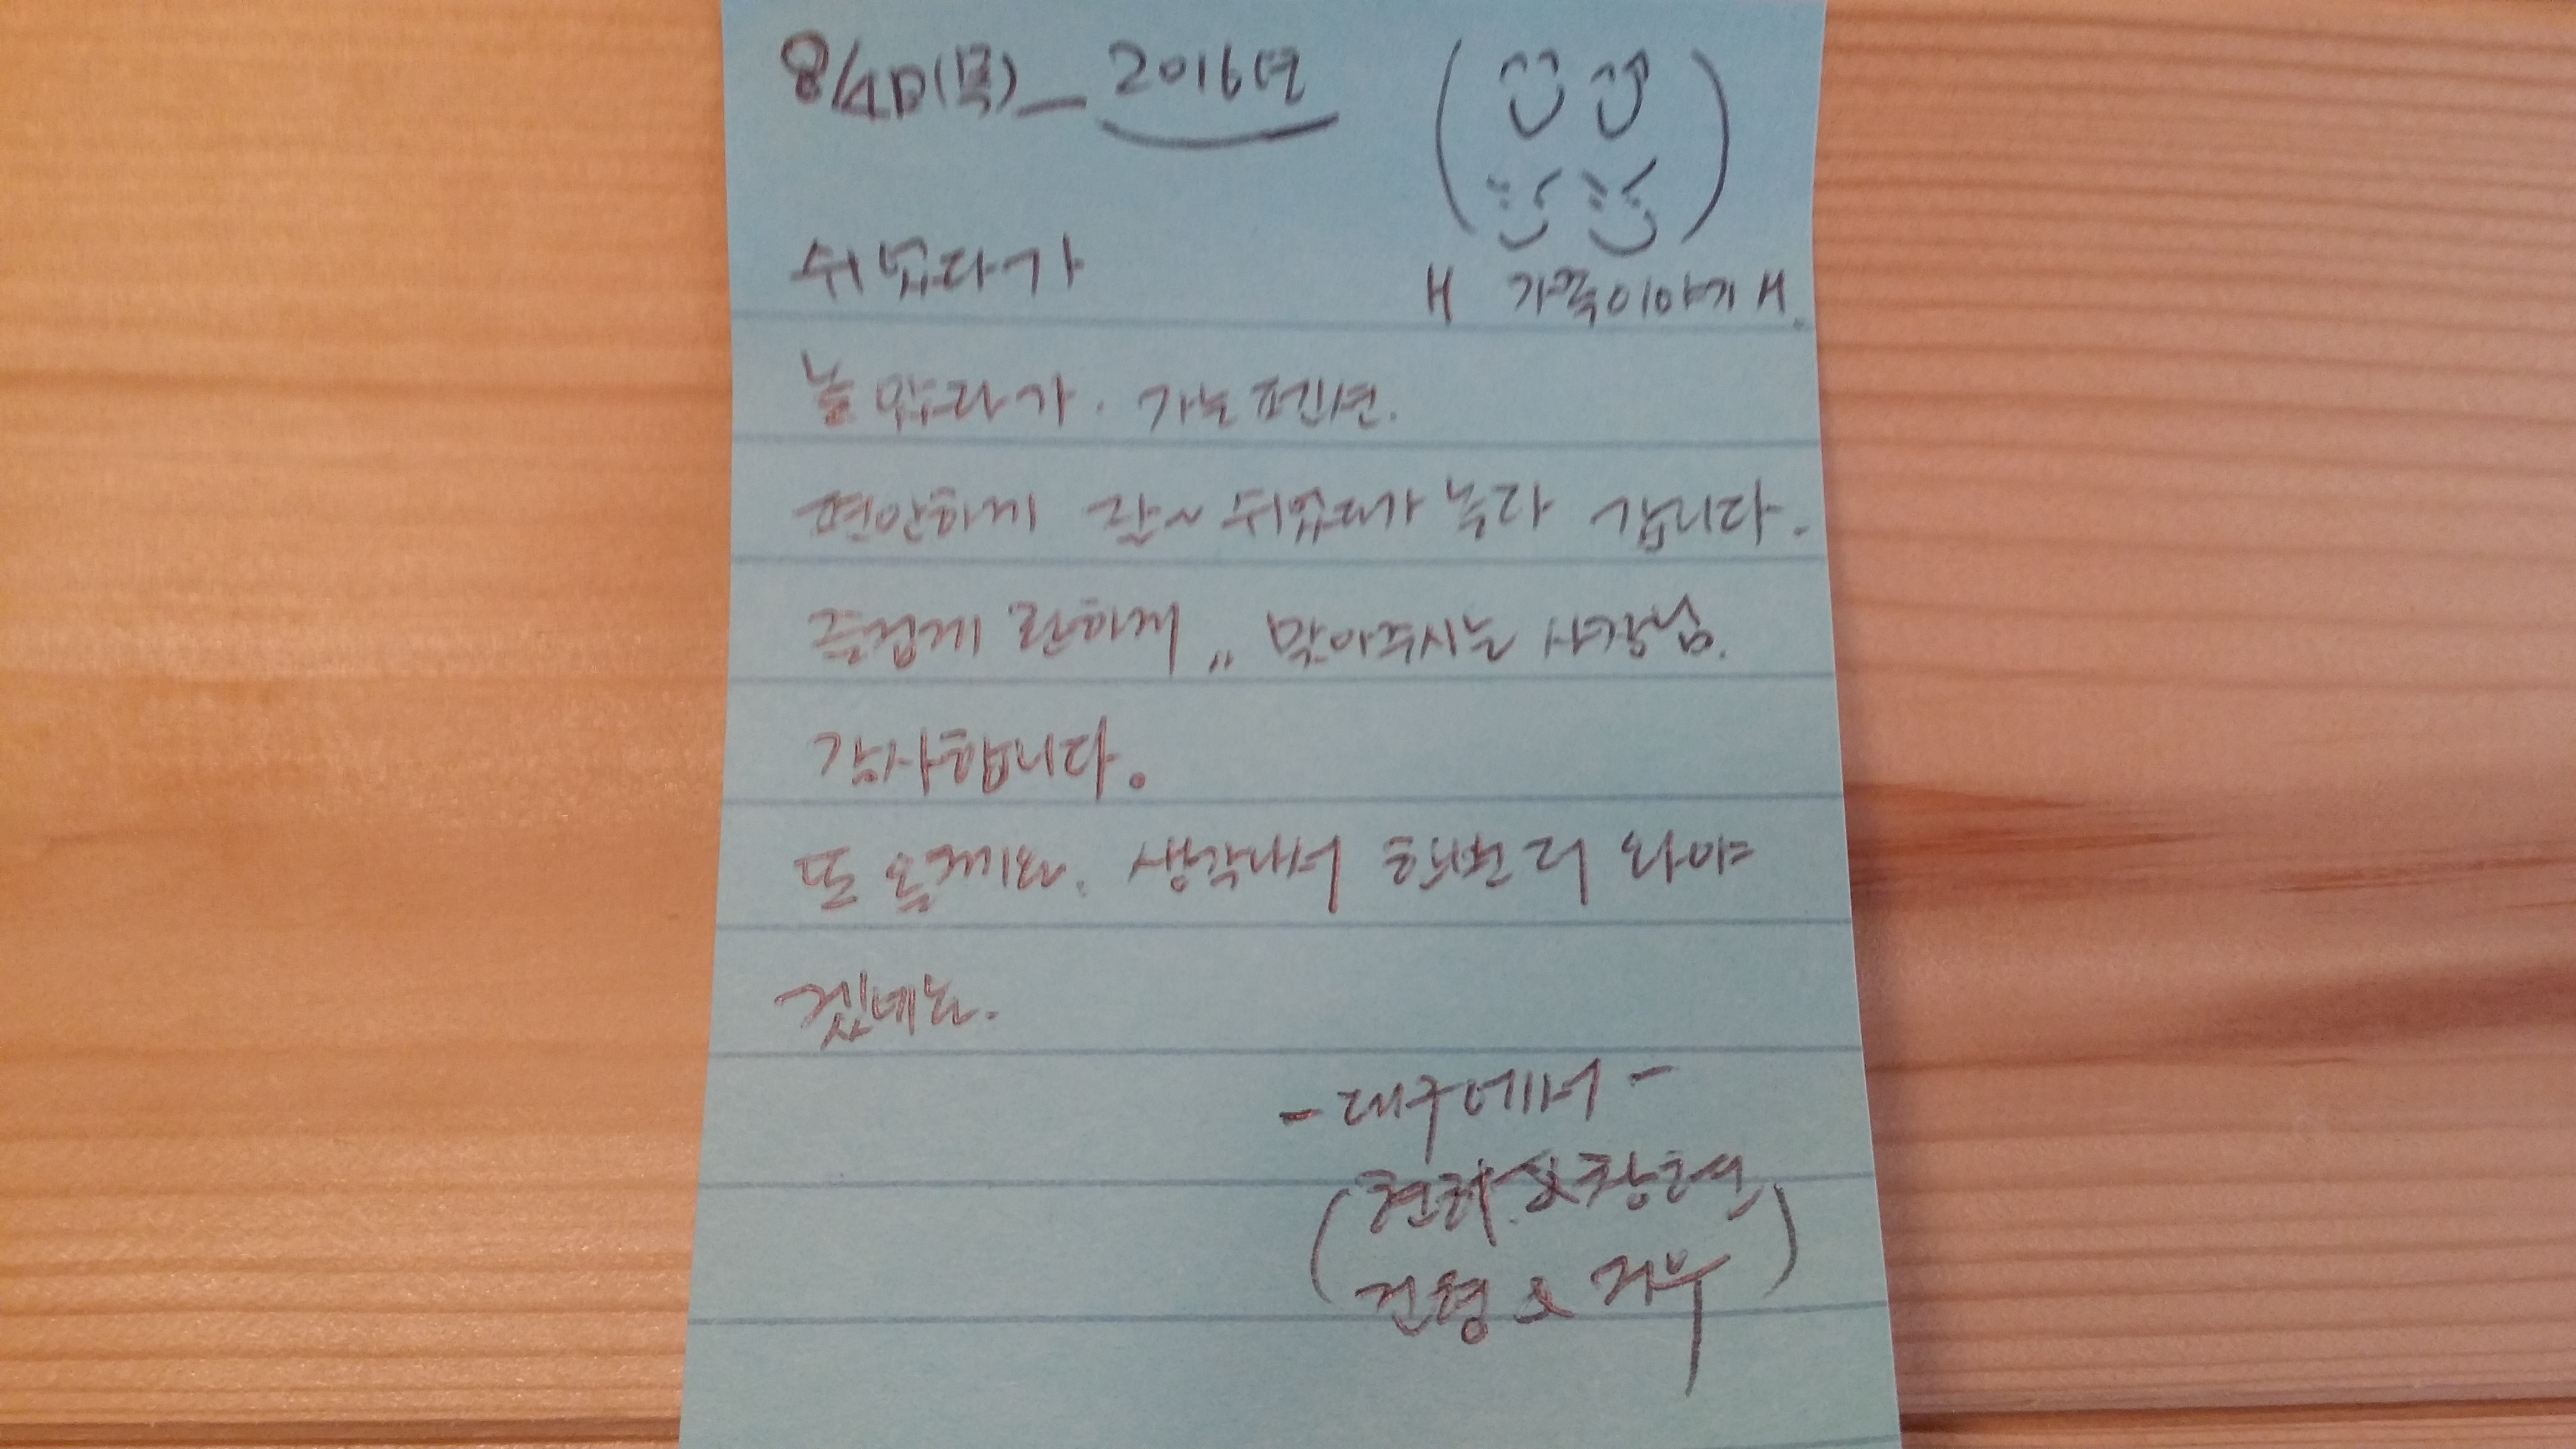 8/4日(목) _ 2016년
H 가족이야기 H.
쉬었다가
놀았다가. 가는 펜션.
편안하게 잘~ 쉬었다가 놀다 갑니다.
즐겁게 환하게 ,, 맞아주시는 사장님.
감사합니다.
또 올게요. 생각나서 한번 더 와야
겠네요.
- 대구에서 -
&창현
건형 & 지우